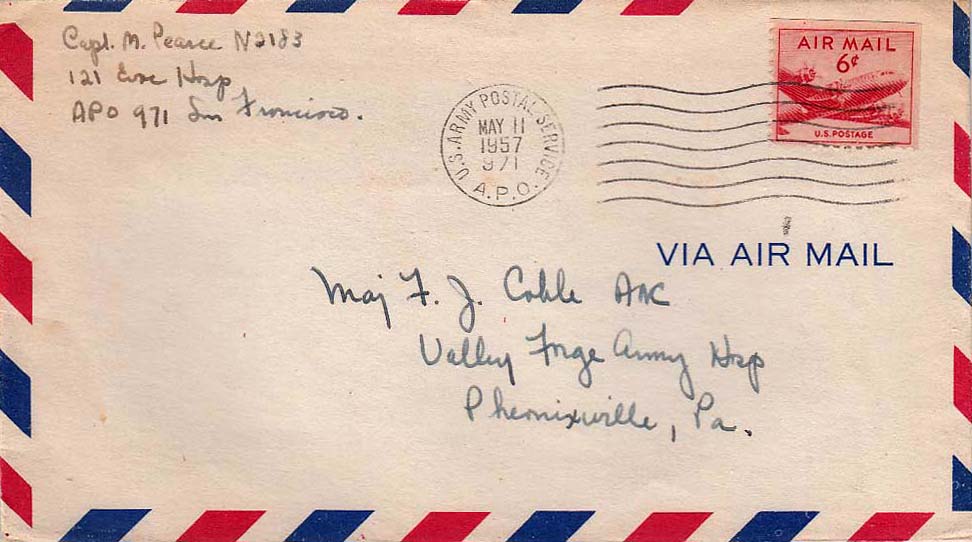 Capt. M. Pearce N2183
121 Evac Hosp
APO 971 San Francisco.
U.S. ARMY POSTAL SERVICE
MAY 11
1957
971
A.P.O.
AIR MAIL
6¢
U.S. POSTAGE
VIA AIR MAIL
Maj F. J. Coble ANC
Valley Forge Army Hosp
Pheonixville, Pa.